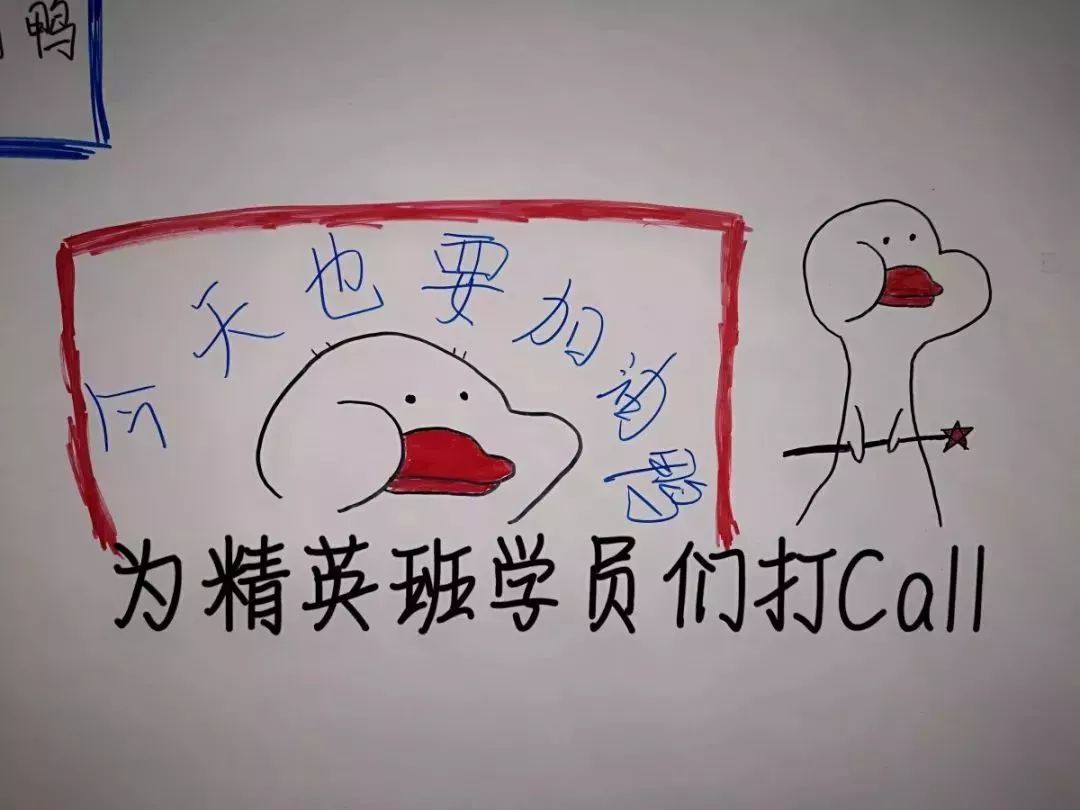 鸭
今天也要加
为精英班学员们打Call